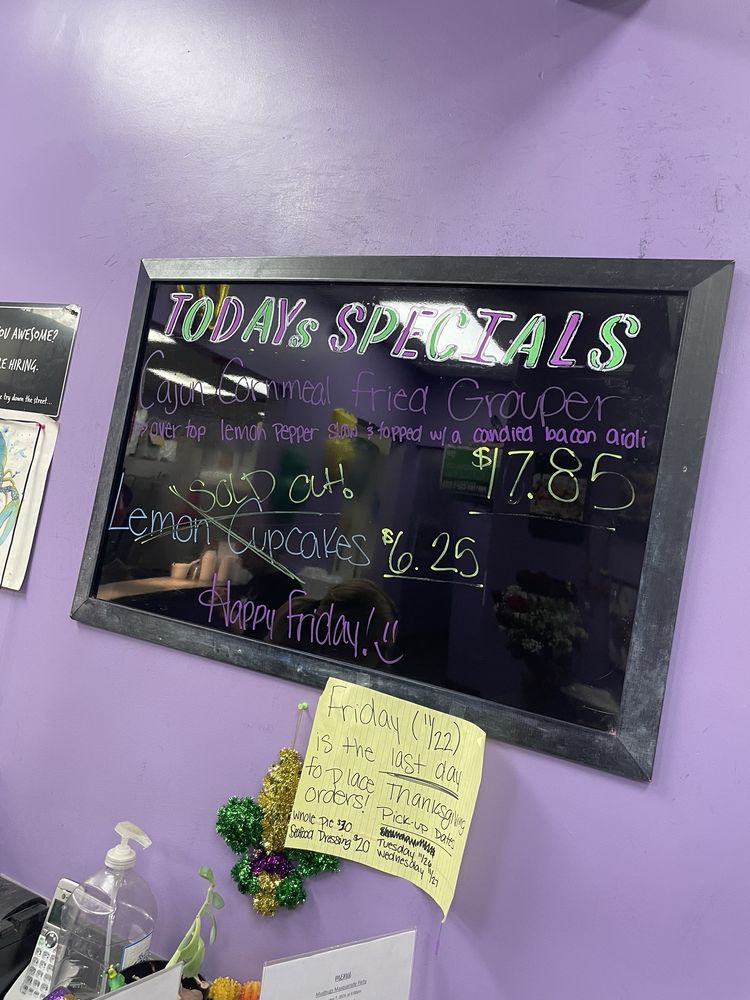 TODAYs SPECIALS
Cajun Cornmeal fried Grouper
over top lemon pepper slaw & topped w/ a candied bacon aioli
$17.85
SOLD OUT!
Lemon Cupcakes $6.25
Happy Friday!
Friday (11/22)
is the last day
to place Thanksgiving
orders!
Pick-up Dates
Tuesday 11/26
Wednesday 11/27
Whole Pie $30
Seafood Dressing $20
OU AWESOME?
E HIRING.
try down the street...
Mudbugs Masquerade Party